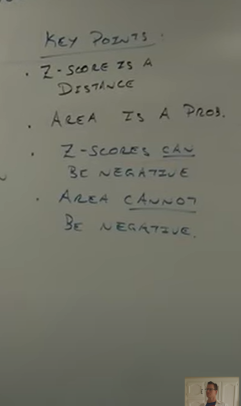 KEY POINTS:
• Z-SCORE IS A
DISTANCE
• AREA IS A PROB.
• Z-SCORES CAN
BE NEGATIVE
• AREA CANNOT
BE NEGATIVE.